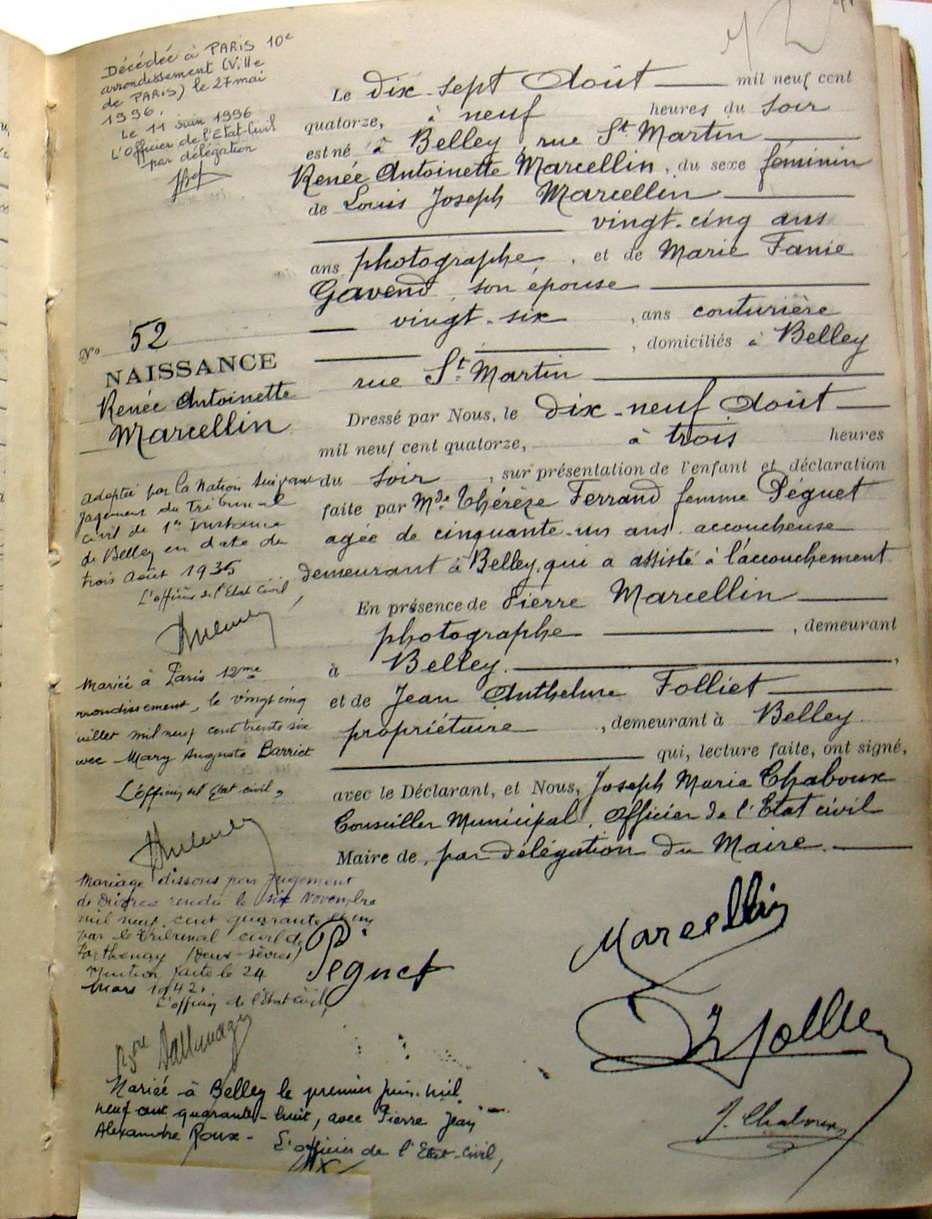 Décédée à PARIS 10e
arrondissement (Ville
de PARIS) le 27 mai
1996.
Le 11 Juin 1996
L'Officier de l'Etat-Civil
par délégation
N° 52
NAISSANCE
Renée Antoinette
Marcellin
Adoptée par la Nation suivant
jugement du Tribunal
civil de 1re Instance
de Belley en date du
trois Août 1935
L'officier de l'Etat civil,
Mariée à Paris 12me
rrondissement, le vingt cinq
uillet mil neuf cent trente six
avec Mary Auguste Barriet
L'officier del'Etat civil,
Mariage dissous par jugement
de Divorce rendu le six Novembre
mil neuf cent quarante
par le Tribunal civil de
Parthenay (Deux-Sèvres)
Mention faite le 24
Mars 1942.
L'officier de l'Etat civil,
Mariée à Belley le premier juin mil
neuf cent quarante-huit, avec Pierre Jean
Alexandre Roux-
L'officier de l'Etat-Civil,
Le dix-sept Août mil neuf cent
quatorze, à neuf heures du soir
est né à Belley, rue St Martin
Renée Antoinette Marcellin, du sexe féminin
de Louis Joseph Marcellin
vingt-cinq ans
ans photographe, et de Marie Fanie
Gavend, son épouse
vingt-six, ans couturière
, domiciliés à Belley
rue St Martin
Dressé par Nous, le dix-neuf Août
mil neuf cent quatorze, à trois heures
du soir, sur présentation de l'enfant et déclaration
faite par Mde Thérèse Ferrand femme Péguet
agée de cinquante-un ans accoucheuse
demeurant à Belley, qui a assisté à l'accouchement
En présence de Pierre Marcellin
photographe, demeurant
à Belley.,
et de Jean Anthelme Folliet
propriétaire, demeurant à Belley
qui, lecture faite, ont signé,
avec le Déclarant, et Nous, Joseph Marie Chaboux
Conseiller Municipal, Officier de l'Etat civil
Maire de, par délégation du Maire.
Marcellin
Péguet
Folliet
J. Chaboux